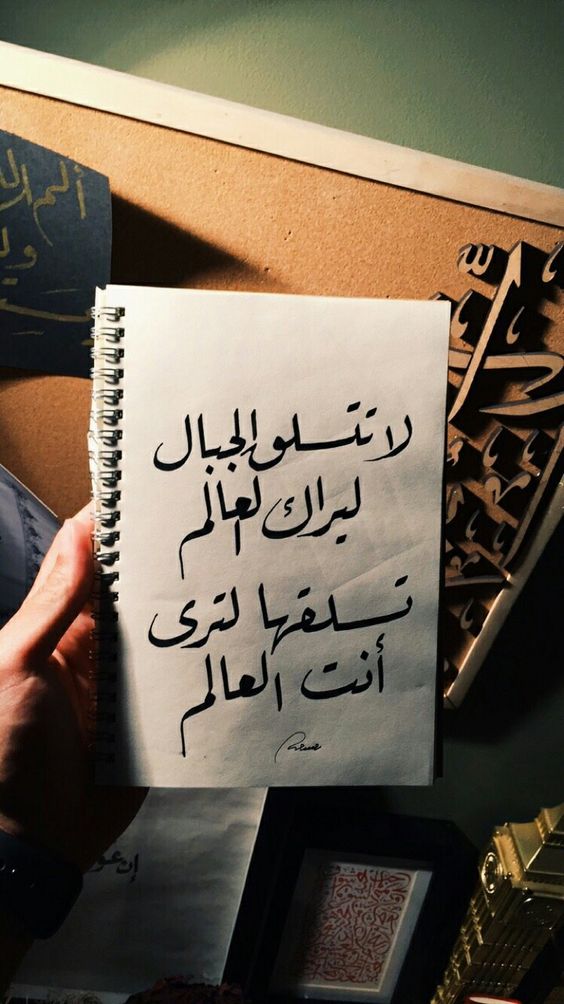 لا تتسلق الجبال
ليراك العالم
تسلقها لترى
أنت العالم
ألم
إن